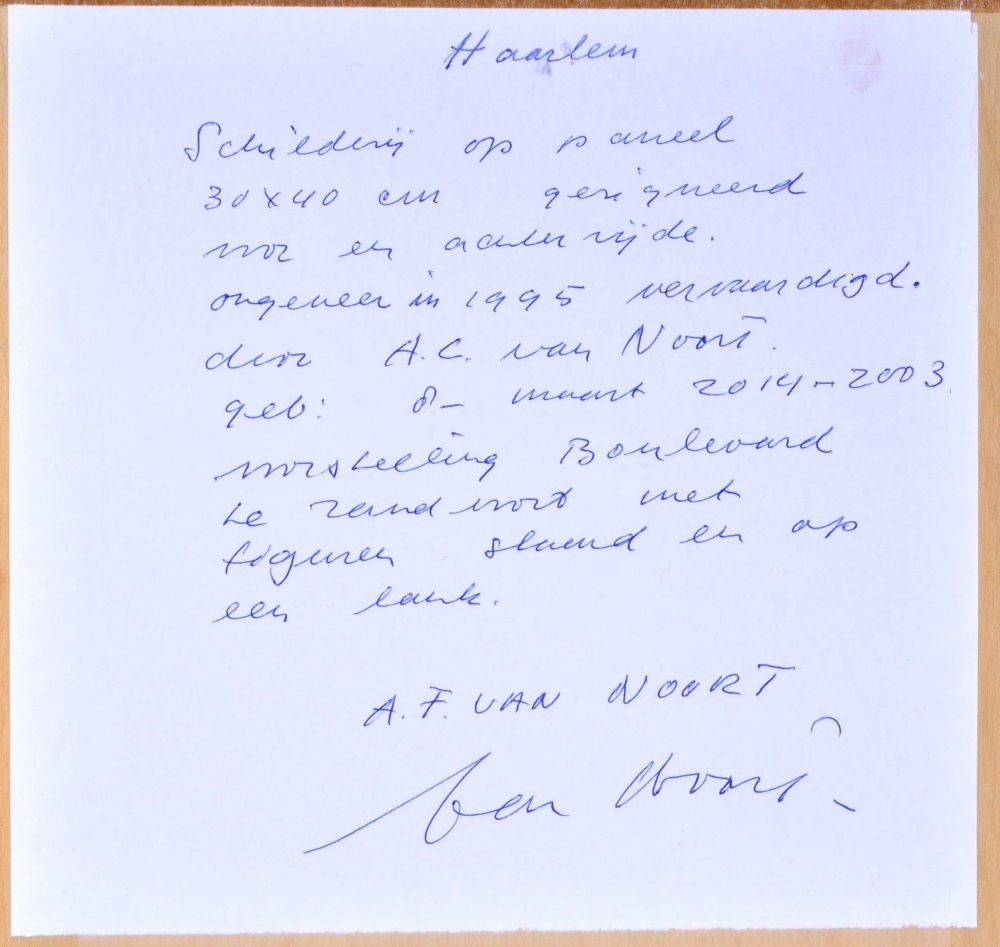 Haarlem
Schilderij op paneel
30x40 cm gesigneerd
voor en achterzijde.
ongeveer in 1995 vervaardigd.
door A.C. van Noort.
geb: 8- maart 2014-2003
voorstelling Boulevard
te zandvoort met
figuren staand en op
een bank.
A.F. VAN NOORT
van Noort